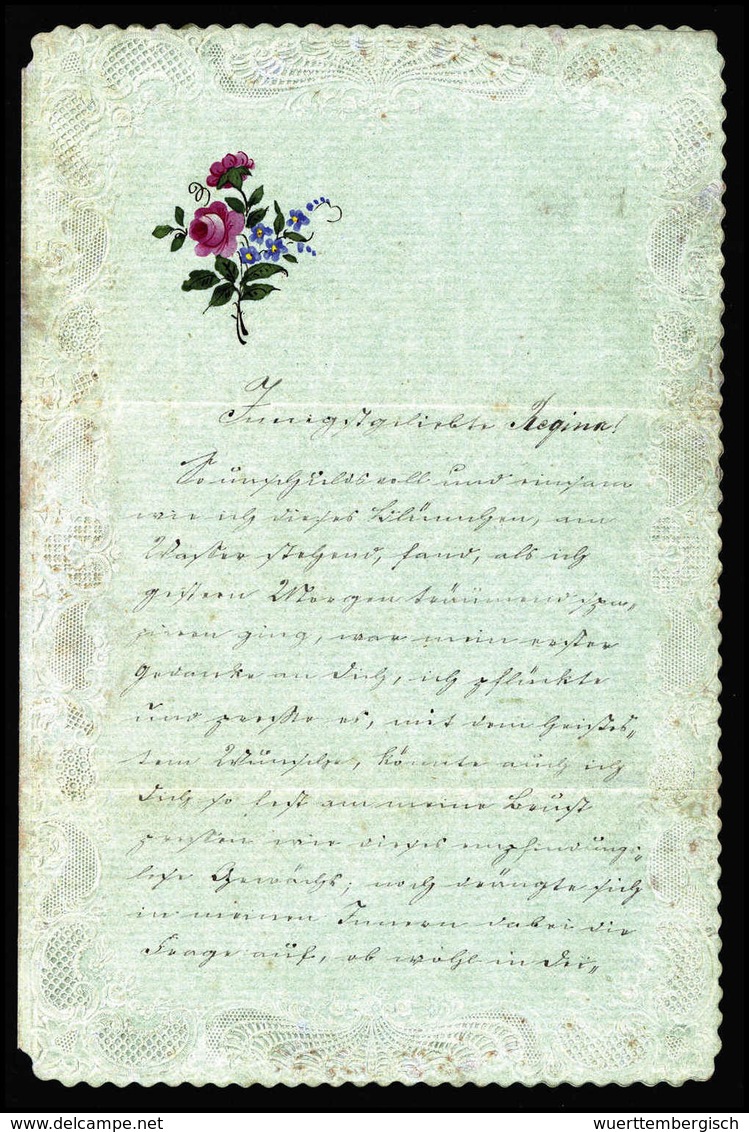 Innigstgeliebte Regina!
So unschuldsvoll und einsam
wie ich dieses Blümchen, am
Wasser stehend, fand, als ich
gestern Morgen träumend spa„
zieren ging, war mein erster
Gedanke an Dich, ich pflückte
und presste es, mit dem
Wunsche, könnte auch ich
Dich so fest am meine Brust
pressen wie dieses empfindungs„
lose Gewächs; noch drängte sich
in meinem Innern dabei die
Frage auf, ob wohl in Dei„
wuerttembergisch